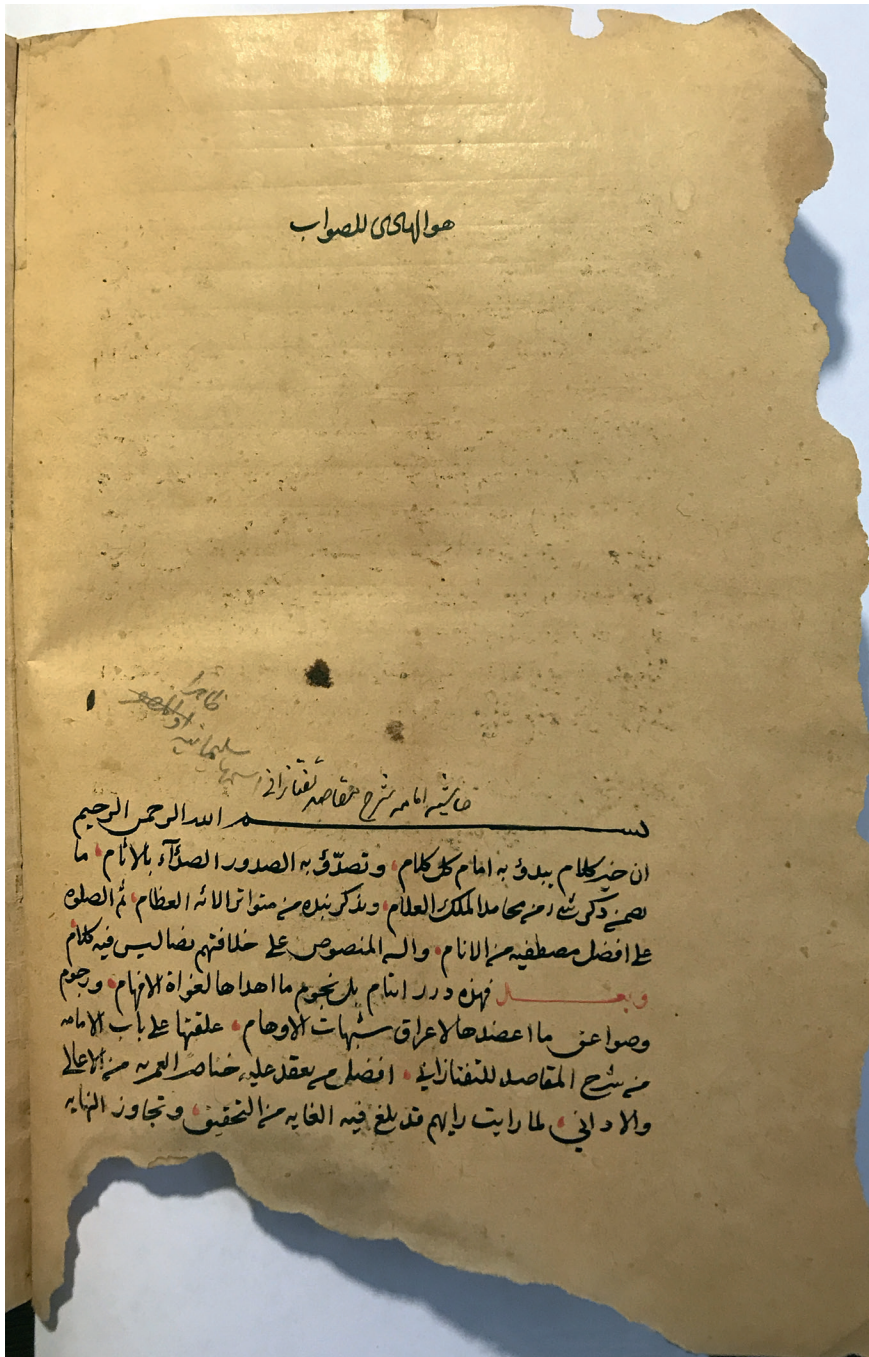 هو الهادی للصواب
سلیمانیه
حاشیه امامه شرح مقاصد تفتازانی
بسم الله الرحمن الرحیم
ان خیر کلام یبدؤ به امام کل کلام وتصدّؤ به الصدور الصدّآء بالاٰثام ما
تضمن ذکر شئ من محامد الملک العلام وبذکر نبذه من متواتر الائه العظام ثم الصلوه
علی افضل مصطفیه من الانام واله المنصوص علی خلافتهم نصا لیس فیه کلام
وبعد فهذه درر ایتام بل نجوم ما اهداها لغواة الافهام ورجوم
وصواعق ما اعضدها لاعراق شبهات الاوهام علقتها علی باب الامامه
من شرح المقاصد للتفتازانی افضل من یعقد علیه خناصر العربیه من الاعالی
والادانی لما رایت رایهم قد بلغ فیه الغایه من التحقیق وتجاوز النهایه